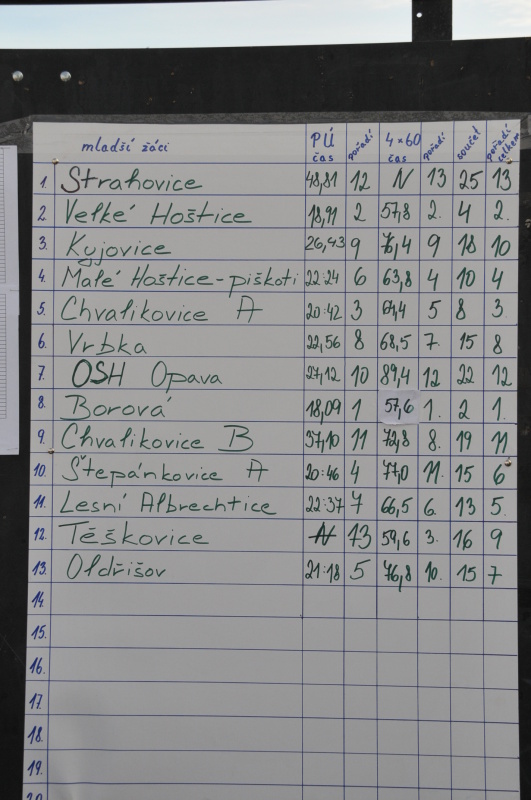 mladší žáci PÚ čas pořadí 4×60 čas pořadí součet pořadí celkem
1. Strahovice 48,81 12 N 13 25 13
2. Velké Hoštice 18,91 2 57,8 2. 4 2.
3. Kyjovice 26,43 9 76,4 9 18 10
4. Malé Hoštice-piškoti 22:24 6 63,8 4 10 4
5. Chvalikovice A 20:42 3 64,4 5 8 3.
6. Vrbka 22,56 8 68,5 7. 15 8
7. OSH Opava 27,12 10 89,4 12 22 12
8. Borová 18,09 1 57,6 1. 2 1.
9. Chvalikovice B 37,10 11 72,8 8. 19 11
10. Štěpánkovice A 20:46 4 77,0 11. 15 6
11. Lesní Albrechtice 22:37 7 66,5 6. 13 5.
12. Těškovice N 13 59,6 3. 16 9
13. Oldřišov 21:18 5 76,8 10. 15 7
14.
15.
16.
17.
18.
19.
20